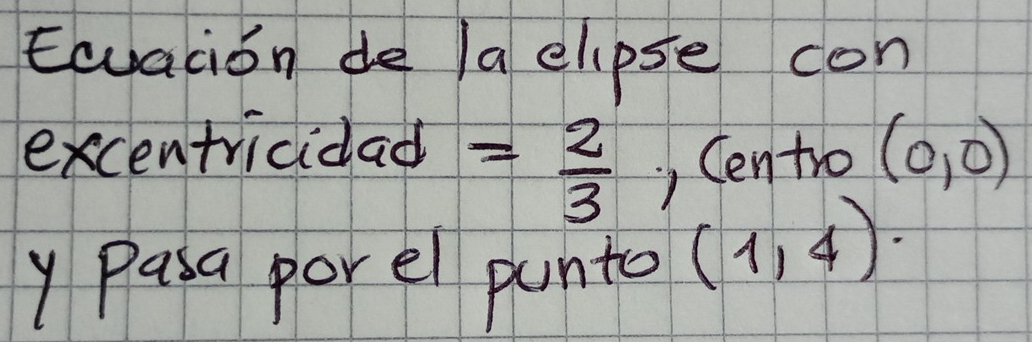 Ecuación de la elipse con
excentricidad = 2/3, Centro (0,0)
y pasa por el punto (1,4).